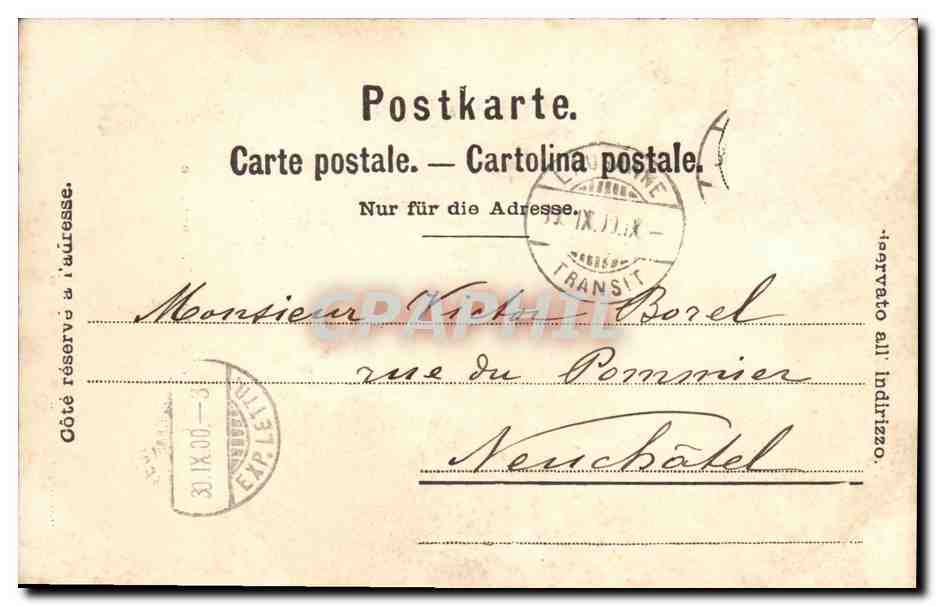 Postkarte.
Carte postale. — Cartolina postale.
Nur für die Adresse.
Côté réservé à l'adresse.
iservato all' indirizzo.
TRANSIT
Monsieur Victor Borel
rue du Pommier
Neuchâtel
CPAPHIL
30.IX.00.—8
EXP. LETTR.